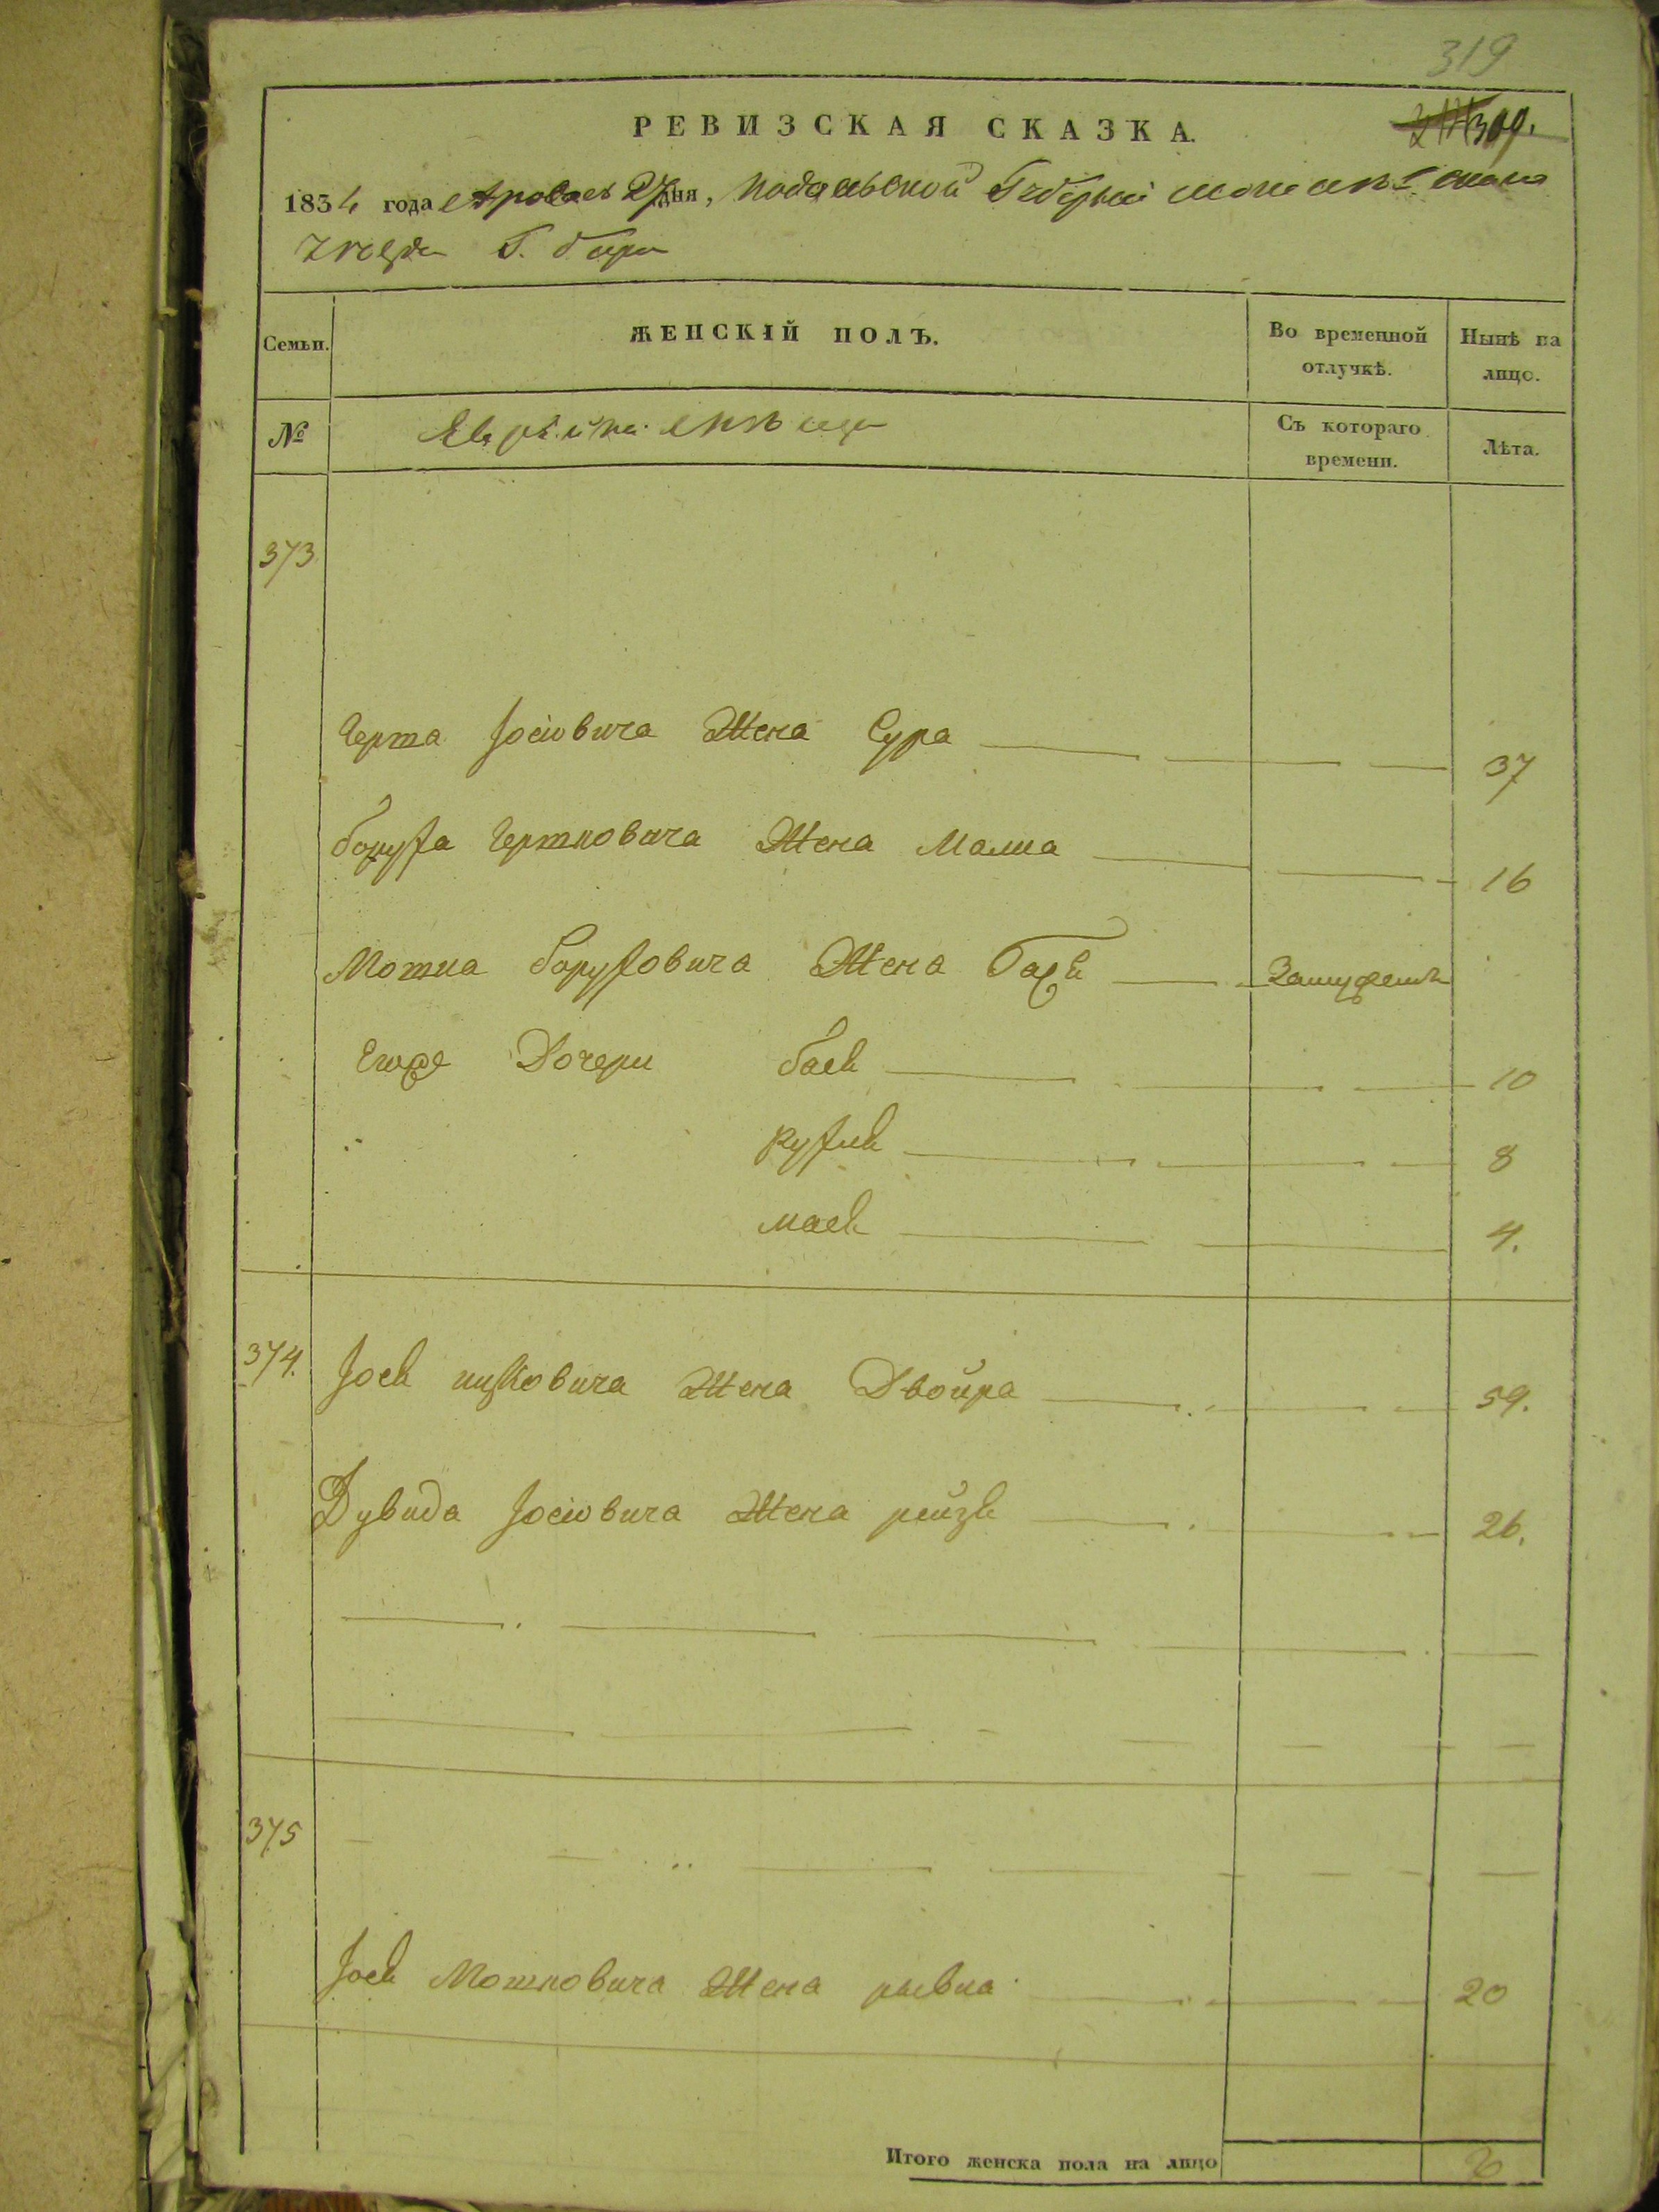 319
309.
РЕВИЗСКАЯ СКАЗКА.
1834 года 27 дня, Подольской Губернии
Г. Бара
Семьи.
ЖЕНСКІЙ ПОЛЪ.
Во временной отлучкѣ.
Нынѣ на лицо.
№
Съ котораго времени.
Лѣта.
373
Герша Іосіовича Жена Сура 37
Боруха Гершковича Жена Малка 16
Мошка Боруховича Жена Замужемъ
Егоже Дочери Бася 10
Рухля 8
Мася 4.
374. Іося Ицковича Жена Двойра 59.
Дувида Іосіовича Жена Рейзя 26.
375
Іося Мошковича Жена Рывка 20
Итого женска пола на лицо